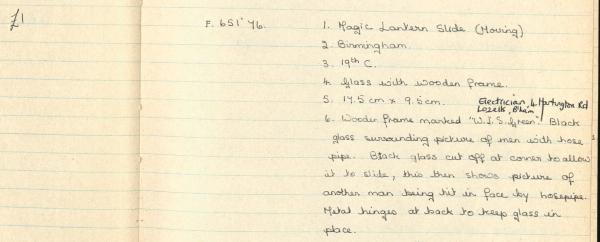 £1
F. 651' 76.
1. Magic Lantern Slide (Moving)
2. Birmingham.
3. 19th C.
4. Glass with wooden frame.
5. 17.5 cm x 9.5 cm.
Electrician, 4, Hartington Rd
Lozells, B'ham
6. Wooden frame marked "W.J.S. Green". Black
glass surrounding picture of men with hose
pipe. Black glass cut off at corner to allow
it to slide, this then shows picture of
another man being hit in face by hosepipe.
Metal hinges at back to keep glass in
place.